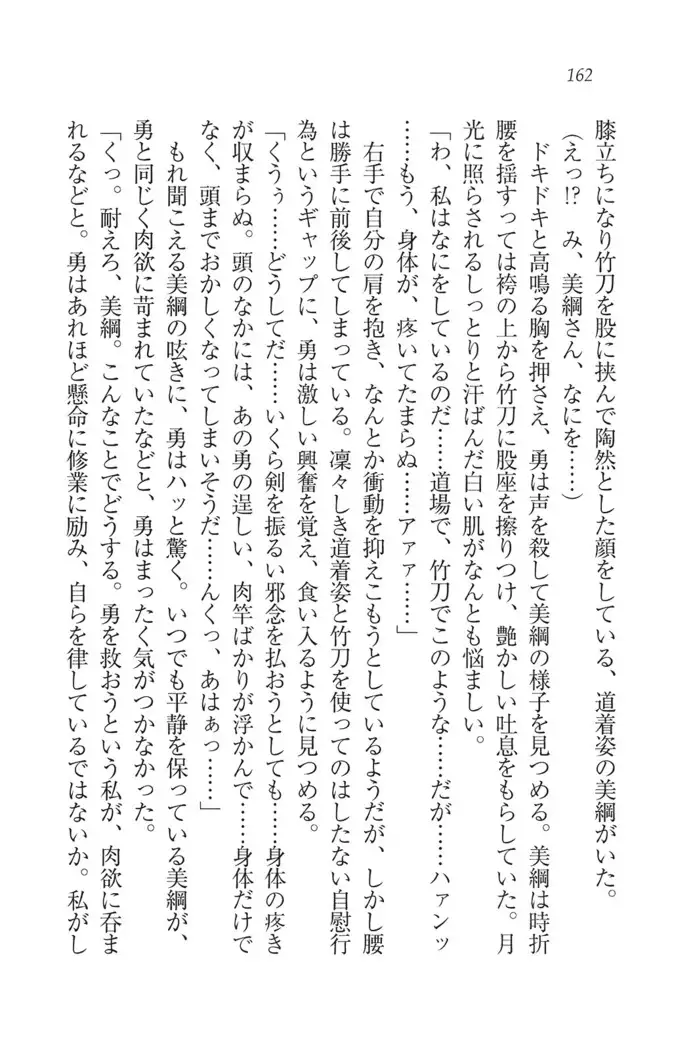 162
膝立ちになり竹刀を股に挟んで陶然とした顔をしている、道着姿の美綱がいた。
(えっ!? み、美綱さん、なにを……)
ドキドキと高鳴る胸を押さえ、勇は声を殺して美綱の様子を見つめる。美綱は時折
腰を揺すっては袴の上から竹刀に股座を擦りつけ、艶かしい吐息をもらしていた。月
光に照らされるしっとりと汗ばんだ白い肌がなんとも悩ましい。
「わ、私はなにをしているのだ……道場で、竹刀でこのような……だが……ハァンッ
……もう、身体が、疼いてたまらぬ……アァァ……」
右手で自分の肩を抱き、なんとか衝動を抑えこもうとしているようだが、しかし腰
は勝手に前後してしまっている。凜々しき道着姿と竹刀を使ってのはしたない自慰行
為というギャップに、勇は激しい興奮を覚え、食い入るように見つめる。
「くうぅ……どうしてだ……いくら剣を振るい邪念を払おうとしても……身体の疼き
が収まらぬ。頭のなかには、あの勇の逞しい、肉竿ばかりが浮かんで……身体だけで
なく、頭までおかしくなってしまいそうだ……んくっ、あはぁっ……」
もれ聞こえる美綱の呟きに、勇はハッと驚く。いつでも平静を保っている美綱が、
勇と同じく肉欲に苛まれていたなどと、勇はまったく気がつかなかった。
「くっ。耐えろ、美綱。こんなことでどうする。勇を救おうという私が、肉欲に呑ま
れるなどと。勇はあれほど懸命に修業に励み、自らを律しているではないか。私がし